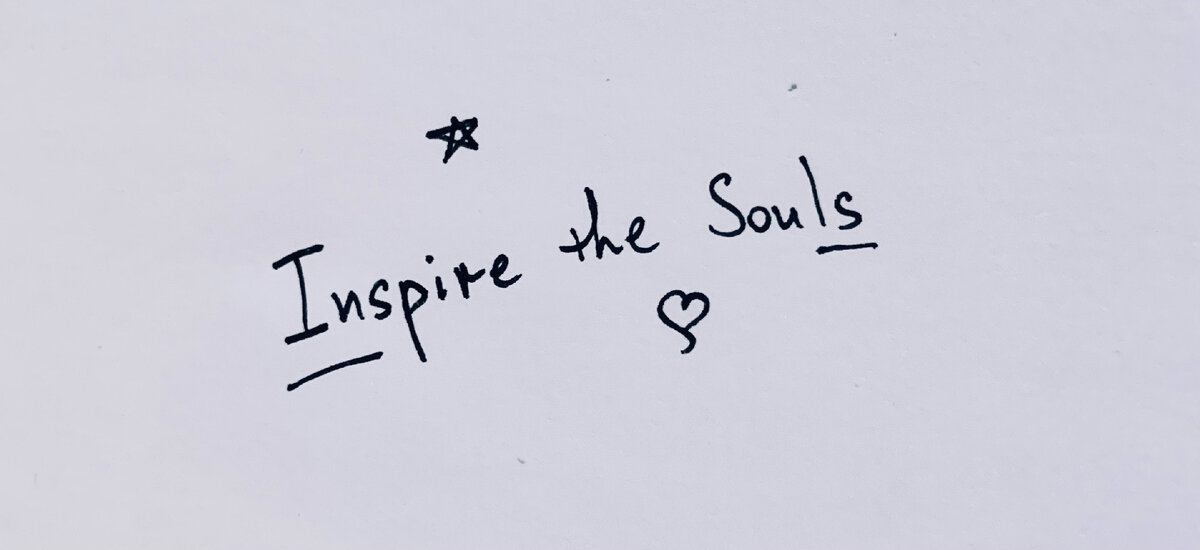 Inspire the Souls